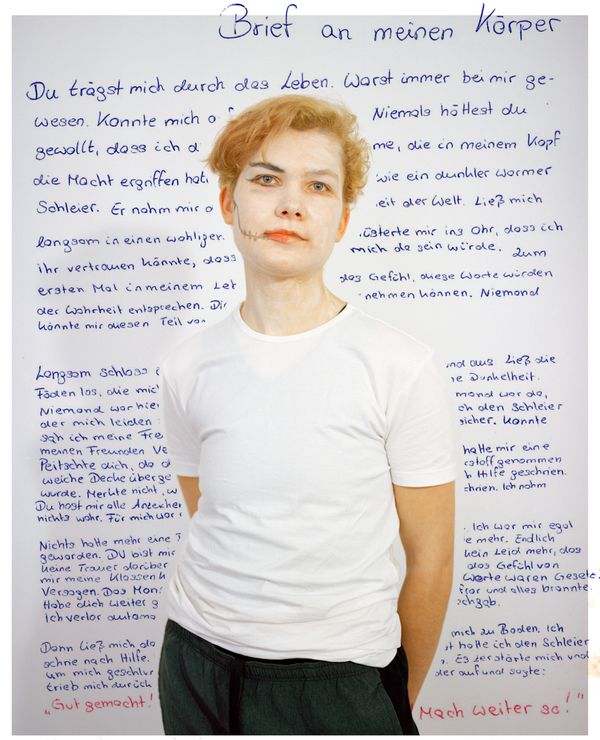 Brief an meinen Körper
Du trägst mich durch das Leben. Warst immer bei mir ge-
wesen. Konnte mich a Niemals hättest du
gewollt, dass ich d me, die in meinem Kopf
die Macht ergriffen hat wie ein dunkler warmer
Schleier. Er nahm mir eit der Welt. Ließ mich
langsam in einen wohligen üsterte mir ins Ohr, dass ich
ihr vertrauen könnte, dass mich da sein würde. Zum
ersten Mal in meinem Leb das Gefühl, diese Worte würden
der Wahrheit entsprechen. Die nehmen können. Niemand
könnte mir diesen Teil von
Langsam schloss nd aus. Ließ die
Fäden los, die mic ie Dunkelheit.
Niemand war hier mand war da,
der mich leiden ch den Schleier
sah ich meine Fre sicher. Konnte
meinen Freunden Ve
Peitschte dich, da d hatte mir eine
weiche Decke überge stoff genommen
wurde. Merkte nicht, w Hilfe geschrien.
Du hast mir alle Anzeichen chrien. Ich nahm
nichts wahr. Für mich war
Nichts hatte mehr eine . Ich war mir egal
geworden. DU bist mir e mehr. Endlich
keine Trauer darüber kein Leid mehr, das
mir meine Klassenk das Gefühl von
Versagen. Das Mons Worte waren Gesetz.
Habe dich weiter g und alles brannte.
Ich verlor automa chgab.
Dann ließ mich da mich zu Boden. Ich
nach Hilfe. st hatte ich den Schleier
um mich geschlun . Es zerstörte mich und
trieb mich der auf und sagte:
„Gut gemacht! Mach weiter so!"